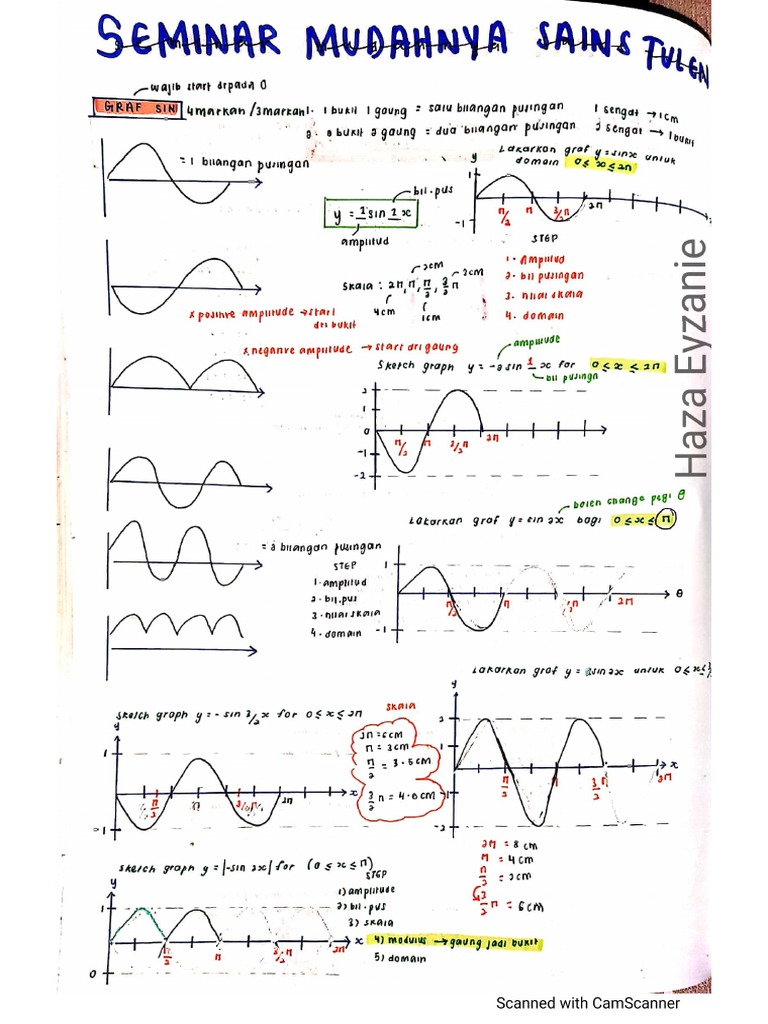 SEMINAR MUDAHNYA SAINS TULEN
wajib start drpada 0
GRAF SIN 4markan /3markan
1. 1 bukit 1 gaung = satu bilangan pusingan
2. 2 bukit 2 gaung = dua bilangan pusingan
1 sengat → 1cm
2 sengat → 1 bukit
= 1 bilangan pusingan
Lakarkan graf y = sin x untuk
domain 0 ≤ x ≤ 2π
y
1
-1
π/2 π 3/2 π 2π
bil.pus
y = 1 sin 1 x
amplitud
STEP
1. Amplitud
2. bil pusingan
3. nilai skala
4. domain
2cm
3cm
skala : 2π, π, π/2, 3/2 π
4cm
1cm
* positive amplitude → start
dri bukit
* negative amplitude → start dri gaung
amplitude
Sketch graph y = -2 sin 1 x for 0 ≤ x ≤ 2π
bil pusingn
2
1
0
-1
-2
π/2 π 3/2 π 2π
Haza Eyzanie
boleh change pagi θ
Lakarkan graf y = sin 2x bagi 0 ≤ x ≤ π
= bilangan pusingan
STEP
1. amplitud
2. bil.pus
3. nilai skala
4. domain
1
-1
π/2 π 3/2 π 2π
θ
Lakarkan graf y = 2 sin 2x untuk 0 ≤ x ≤
y
2
1
-1
-2
π/2 π 3/2 π 2π
x
Sketch graph y = - sin 3/2 x for 0 ≤ x ≤ 2π
y
1
-1
2π
x
skala
2π = 6cm
π = 3cm
π/2 =
3/2 π =
2π = 8 cm
π = 4 cm
π/2 = 2cm
3/2 π = 6cm
sketch graph y = |-sin 2x| for (0 ≤ x ≤ π)
STEP
1) amplitude
2) bil.pus
3) skala
4) modulus → gaung jadi bukit
5) domain
y
1
0
π/2 π 3/2 π 2π
x
Scanned with CamScanner